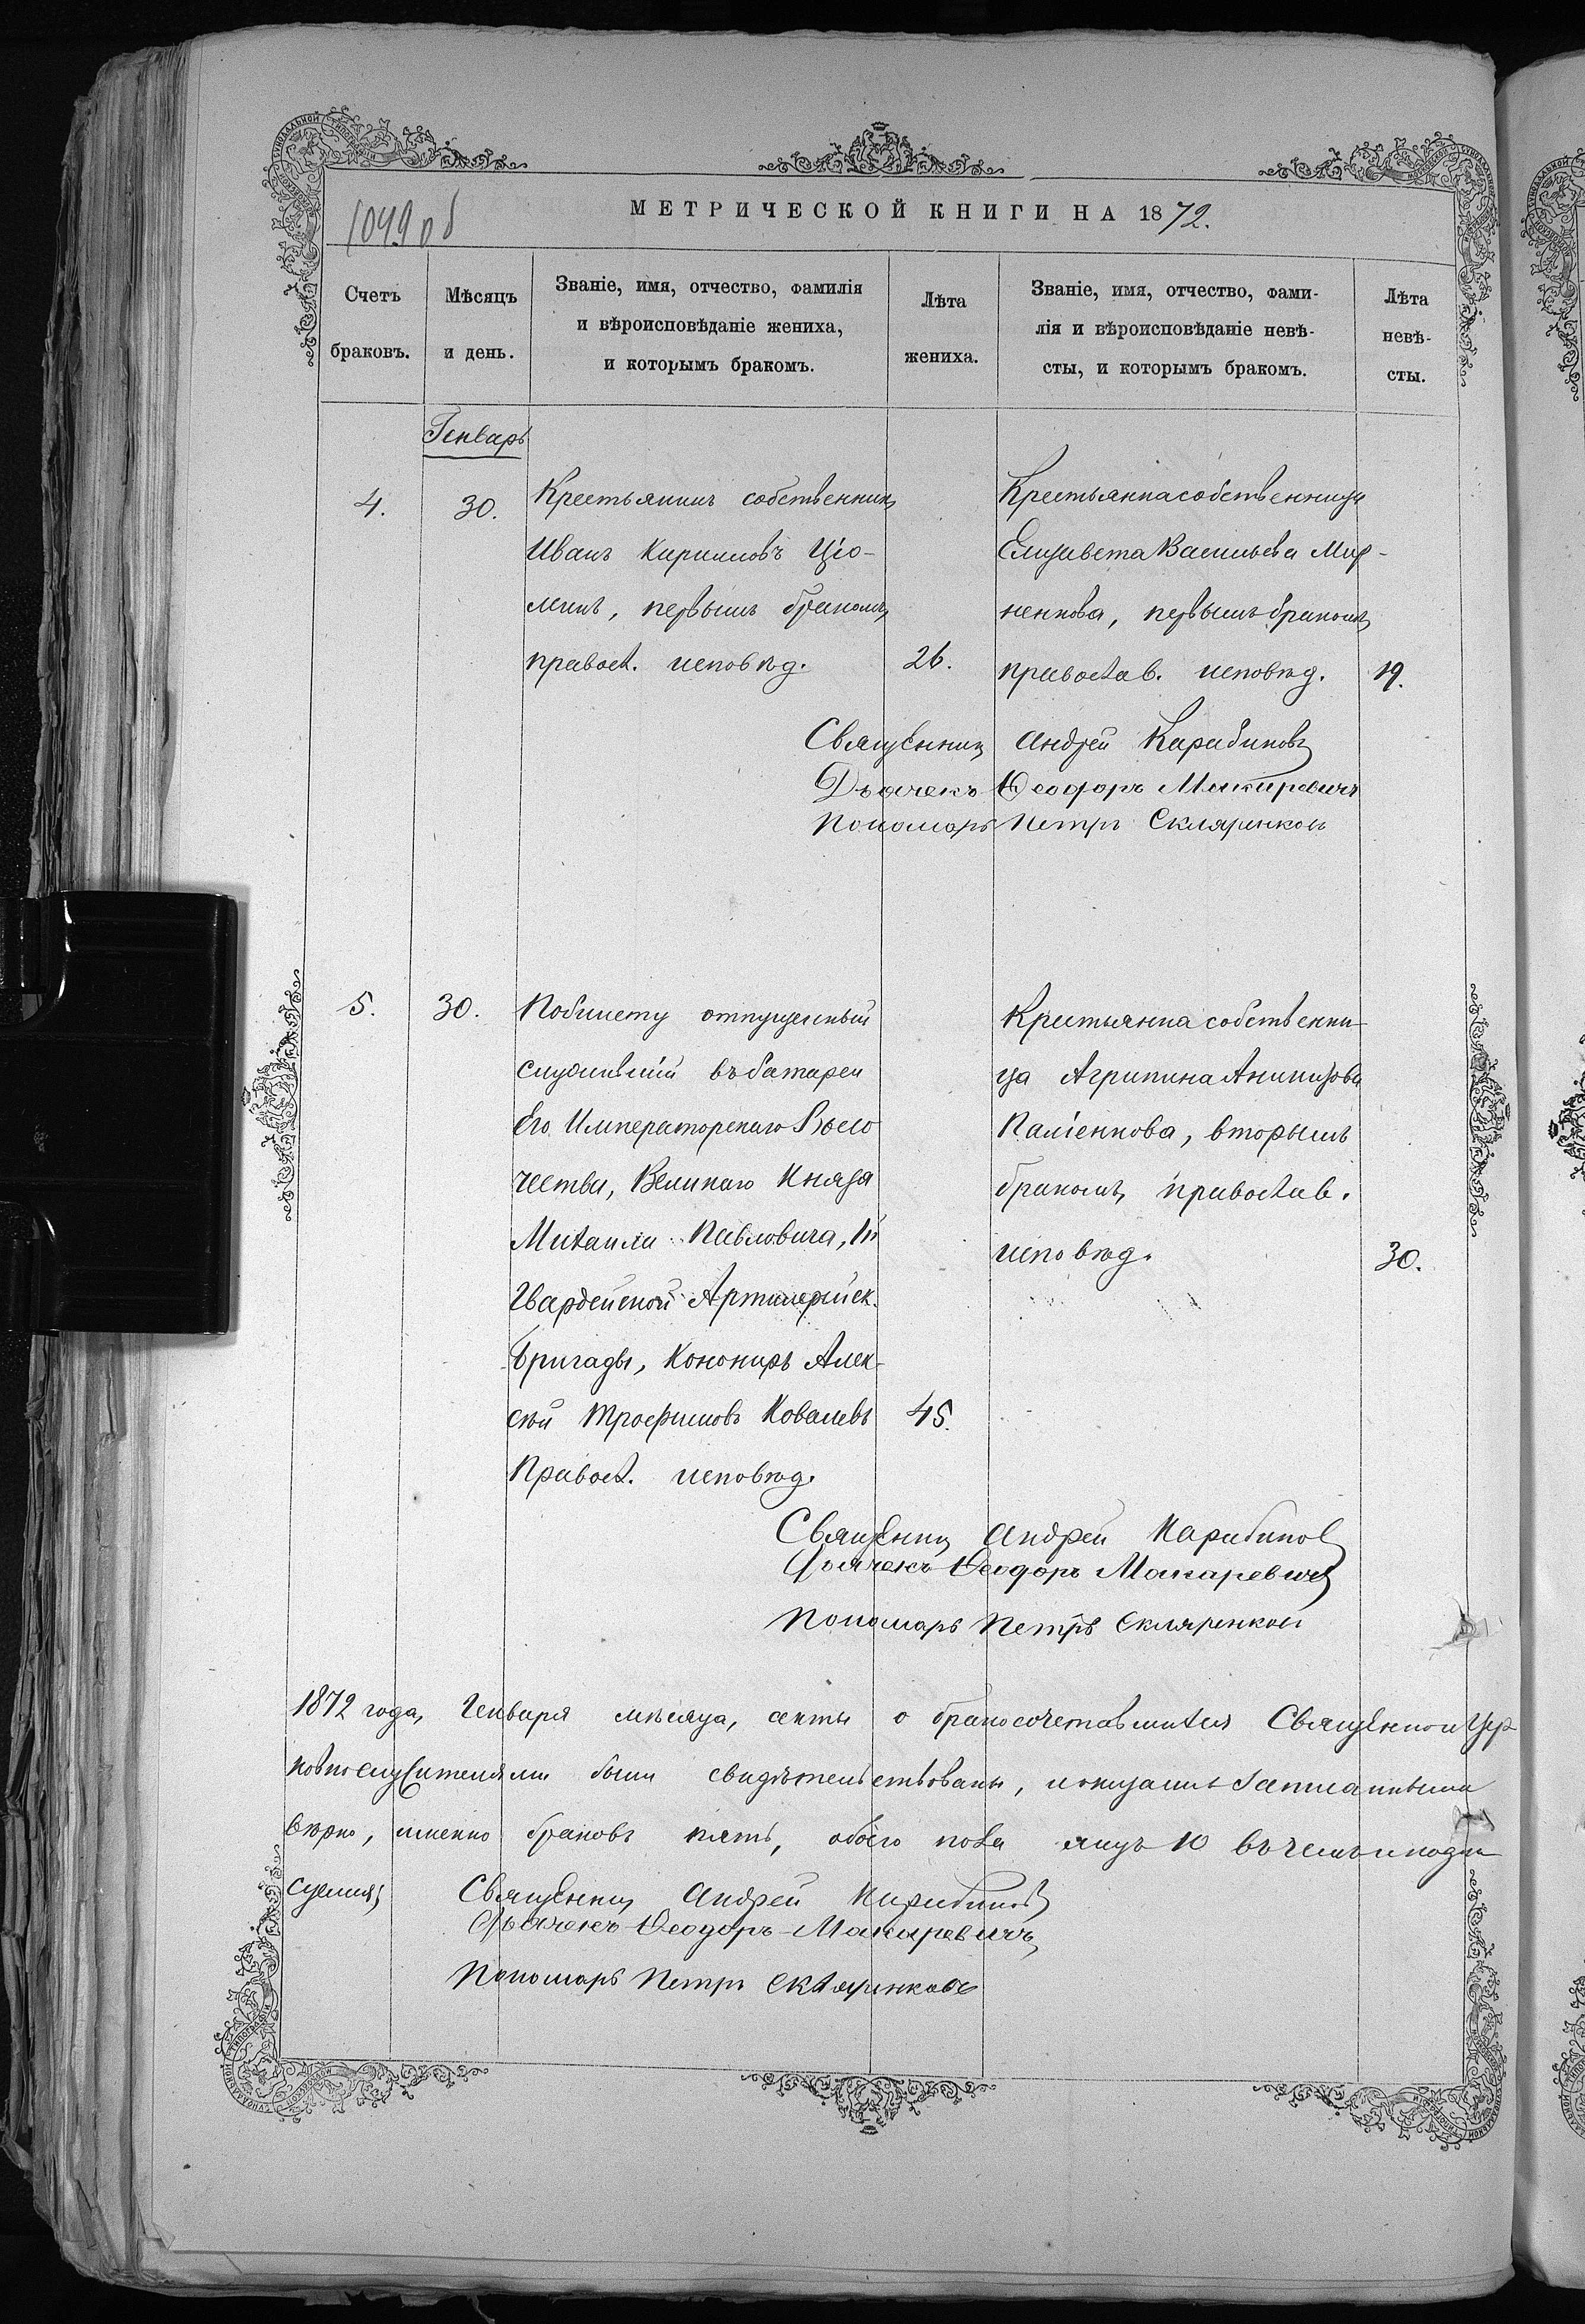 1099 об
МЕТРИЧЕСКОЙ КНИГИ НА 1872.
Счетъ браковъ.
Мѣсяцъ и день.
Званіе, имя, отчество, фамилія
и вѣроисповѣданіе жениха,
и которымъ бракомъ.
Лѣта
жениха.
Званіе, имя, отчество, фами-
лія и вѣроисповѣданіе невѣ-
сты, и которымъ бракомъ.
Лѣта
невѣ-
сты.
Генварь
4.
30.
Крестьянинъ собственникъ
Иванъ Кирилловъ Цю-
, первымъ бракомъ,
правосл. исповѣд.
26.
Крестьянка собственница
Елизавета Васильева Мир-
ненкова, первымъ бракомъ,
православ. исповѣд.
19.
Священникъ Андрей Карабиновъ
Дьячекъ Ѳеодоръ Макаревичъ
Пономарь Петръ Скляренковъ
5.
30.
По билету отпущенный
служившій въ батареи
Его Императорскаго Высо
чества, Великаго Князя
Михаила Павловича, 1й
Гвардейской Артилерійск.
бригады, Конониръ Алек-
сѣй Трофимовъ Ковалевъ
Правосл. исповѣд.
45.
Крестьянка собственни-
ца Агрипина Анипизова
, вторымъ
бракомъ, православ.
исповѣд.
30.
Священникъ Андрей Карабиновъ
Дьячекъ Ѳеодоръ Макаревичъ
Пономарь Петръ Скляренковъ
1872 года, Генваря мѣсяца, акты о бракосочетавшихся Священно и Цер
ковнослужителями были свидѣтельствованы, и оказались записанными
вѣрно, именно браковъ пять, обоего пола лицъ 10 въ чемъ и подпи
суемся,
Священникъ Андрей Карабиновъ
Дьячекъ Ѳеодоръ Макаревичъ
Пономарь Петръ Скляренковъ